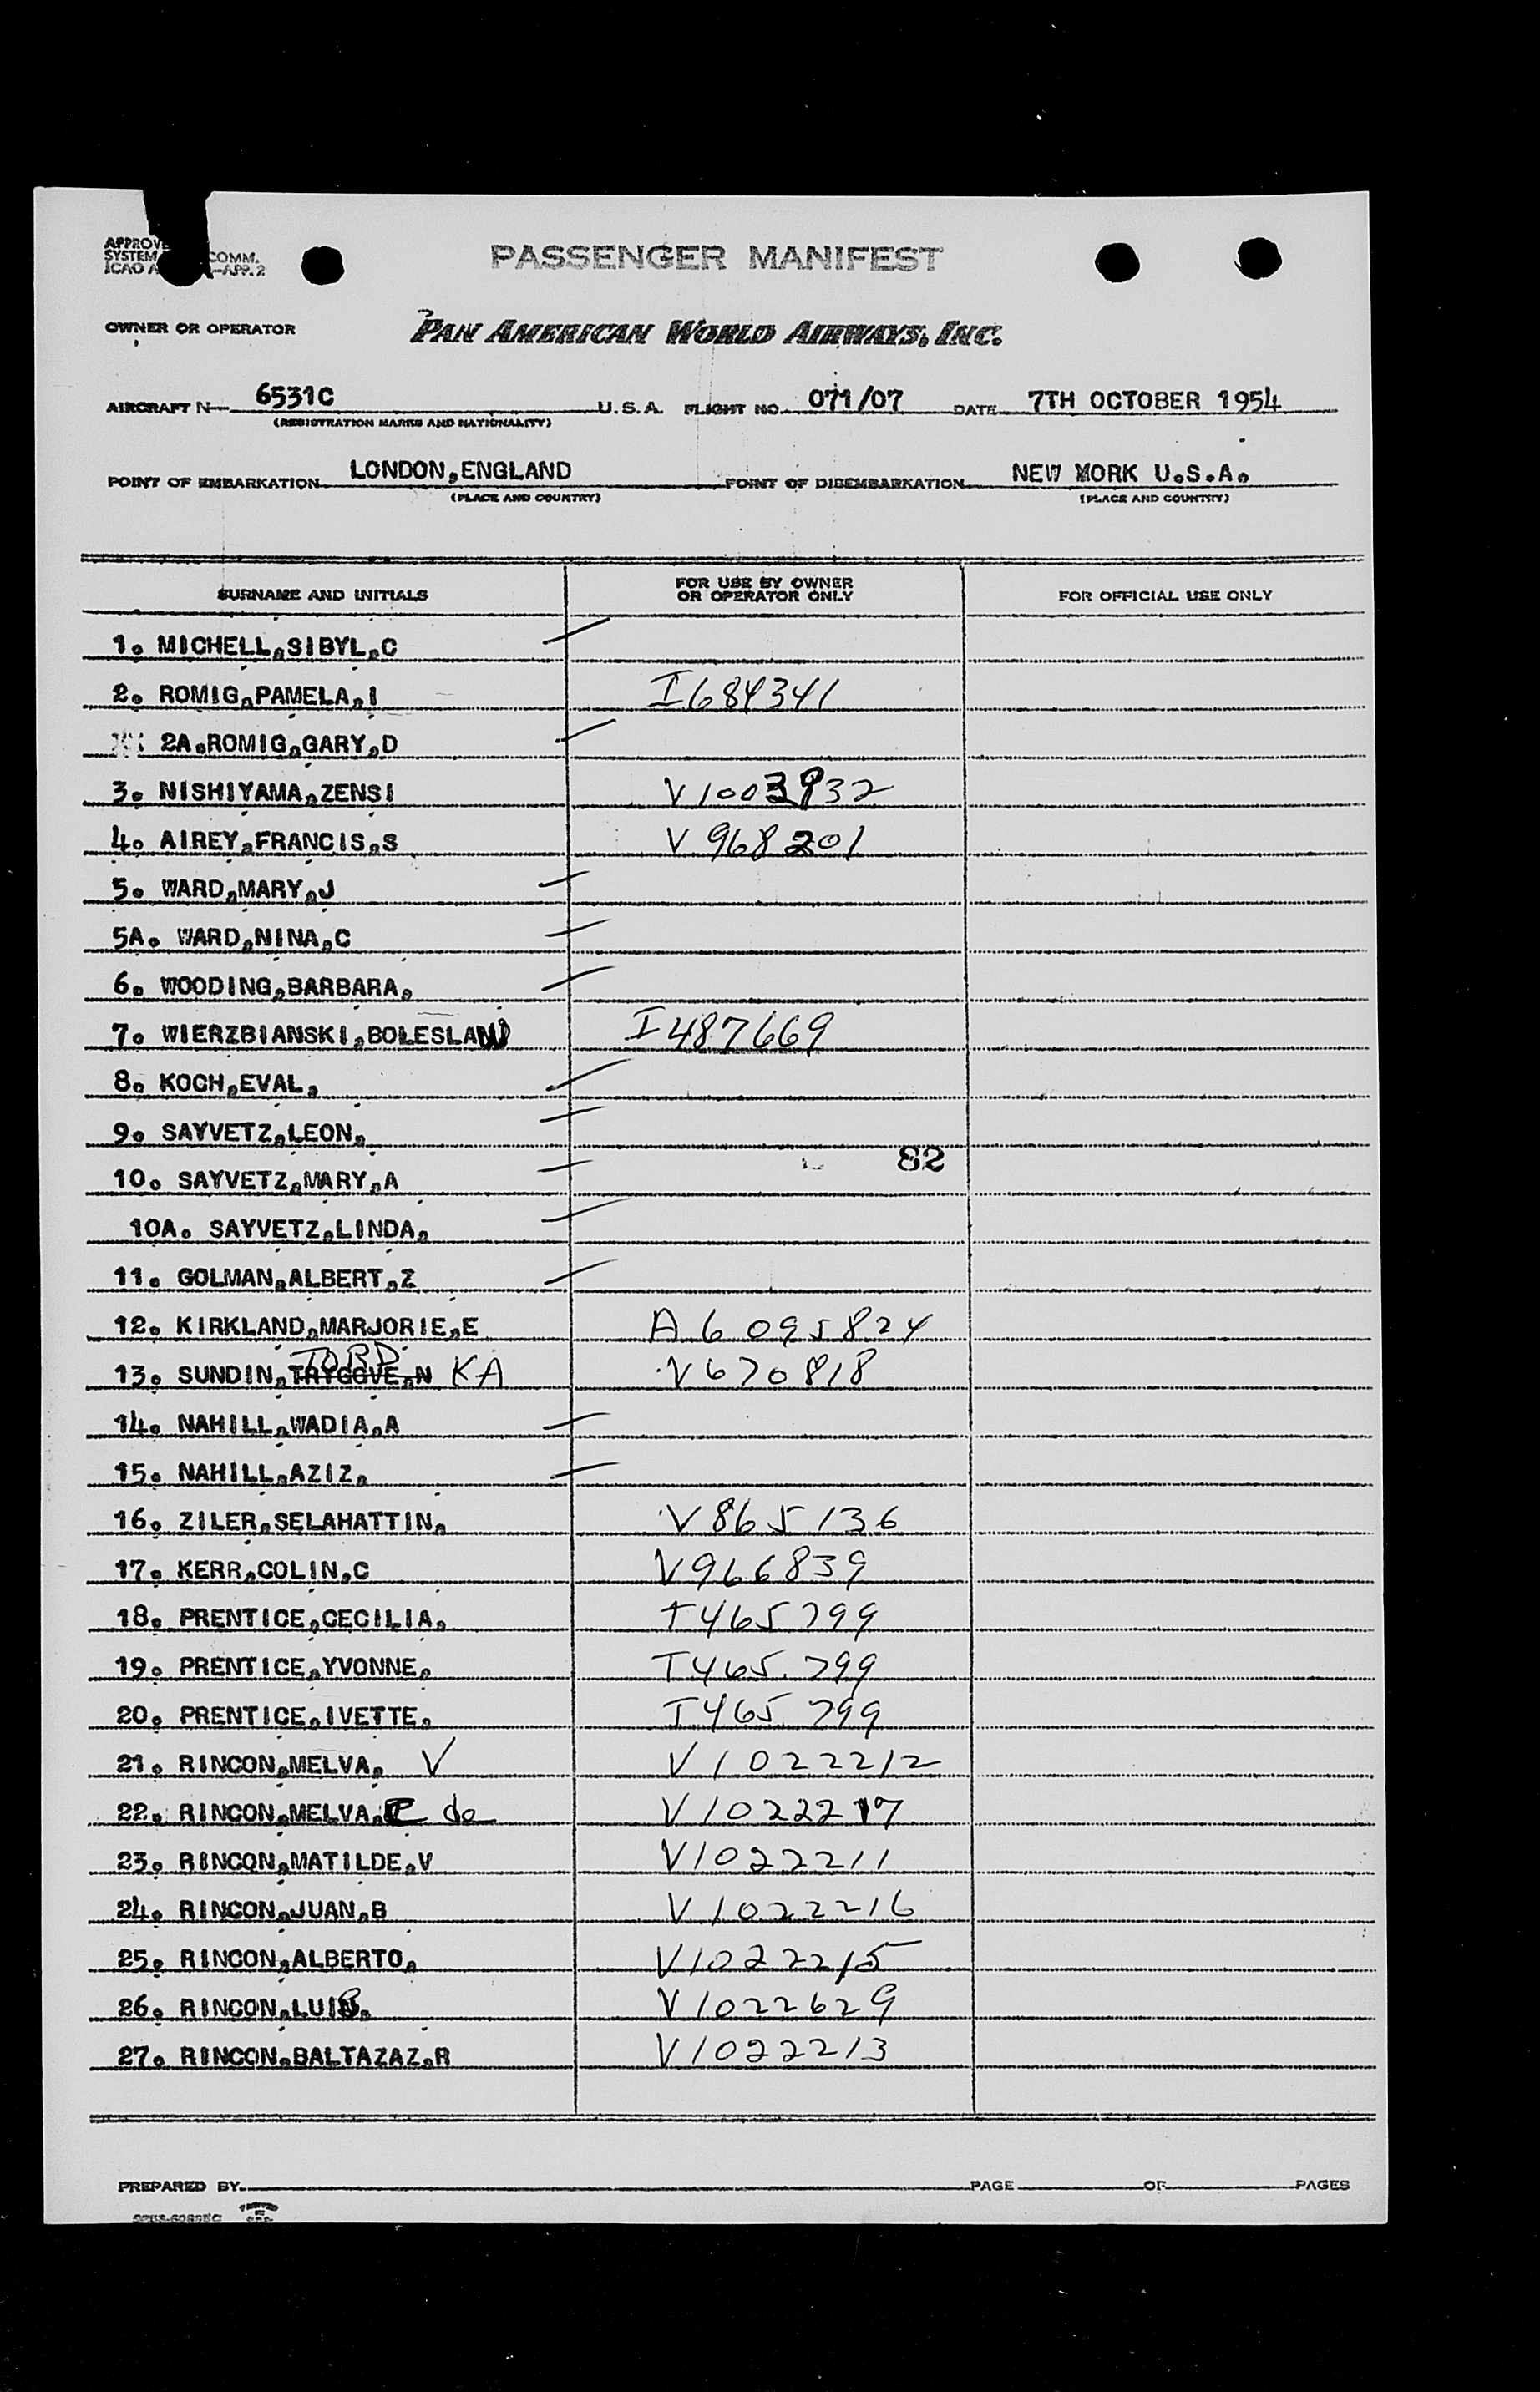 PASSENGER MANIFEST
COMM.
ICAO A -APP. 2
OWNER OR OPERATOR
PAN AMERICAN WORLD AIRWAYS, INC.
AIRCRAFT N— 6531C U.S.A. FLIGHT NO. 071/07 DATE 7TH OCTOBER 1954
(REGISTRATION MARKS AND NATIONALITY)
POINT OF EMBARKATION LONDON,ENGLAND POINT OF DISEMBARKATION NEW YORK U.S.A.
(PLACE AND COUNTRY) (PLACE AND COUNTRY)
SURNAME AND INITIALS FOR USE BY OWNER OR OPERATOR ONLY FOR OFFICIAL USE ONLY
1. MICHELL,SIBYL,C
2. ROMIG,PAMELA,I I684341
2A.ROMIG,GARY,D
3. NISHIYAMA,ZENSI V1003932
4. AIREY,FRANCIS,S V968201
5. WARD,MARY,J
5A. WARD,NINA,C
6. WOODING,BARBARA,
7. WIERZBIANSKI,BOLESLAW I487669
8. KOCH,EVAL,
9. SAYVETZ,LEON,
82
10. SAYVETZ,MARY,A
10A. SAYVETZ,LINDA,
11. GOLMAN,ALBERT,Z
12. KIRKLAND,MARJORIE,E A6095824
13. SUNDIN,TRYGGVE,N TORD KA V670818
14. NAHILL,WADIA,A
15. NAHILL,AZIZ,
16. ZILER,SELAHATTIN, V865136
17. KERR,COLIN,C V966839
18. PRENTICE,CECILIA, T465799
19. PRENTICE,YVONNE, T465799
20. PRENTICE,IVETTE, T465799
21. RINCON,MELVA, V V1022212
22. RINCON,MELVA, C de V1022217
23. RINCON,MATILDE,V V1022211
24. RINCON,JUAN,B V1022216
25. RINCON,ALBERTO, V1022215
26. RINCON,LUIS. V1022629
27. RINCON,BALTAZAZ,R V1022213
PREPARED BY PAGE OF PAGES